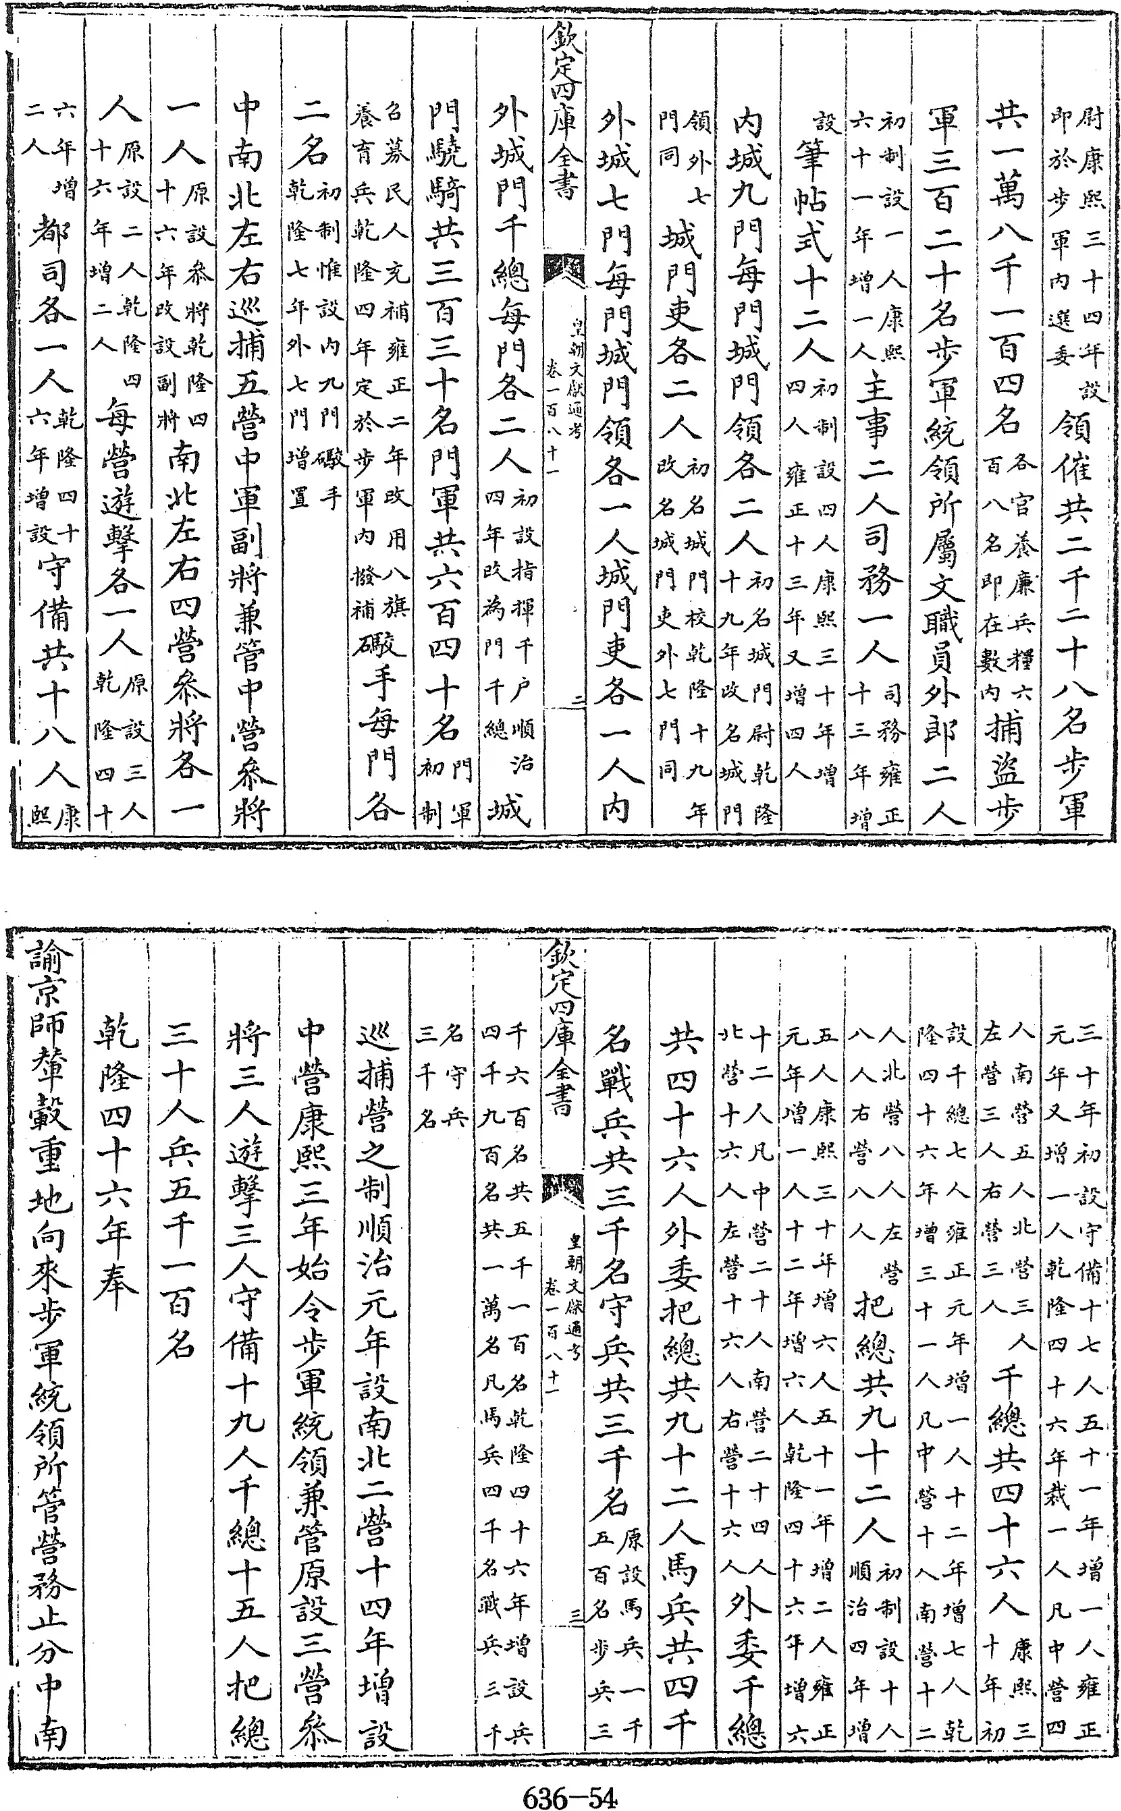 尉康熙三十四年設即於步軍內選委領催共二千二十八名步軍
共一萬八千一百四名各官養廉兵糧六百八名即在數內捕盜步
軍三百二十名步軍統領所屬文職員外郎二人
初制設一人康熙六十一年增一人主事二人司務一人司務雍正十三年增
設筆帖式十二人初制設四人康熙三十年增四人雍正十三年又增四人
內城九門每門城門領各二人初名城門尉乾隆十九年改名城門
領外七門同城門吏各二人初名城門校乾隆十九年改名城門吏外七門同
外城七門每門城門領各一人城門吏各一人內
欽定四庫全書
皇朝文獻通考
卷一百八十一
二
外城門千總每門各二人初設指揮千戶順治四年改為門千總城
門驍騎共三百三十名門軍共六百四十名門軍初制
召募民人充補雍正二年改用八旗養育兵乾隆四年定於步軍內撥補礮手每門各
二名初制惟設內九門礮手乾隆七年外七門增置
中南北左右巡捕五營中軍副將兼管中營叅將
一人原設叅將乾隆四十六年改設副將南北左右四營叅將各一
人原設二人乾隆四十六年增二人每營遊擊各一人原設三人乾隆四十
六年增二人都司各一人乾隆四十六年增設守備共十八人康熙
三十年初設守備十七人五十一年增一人雍正元年又增一人乾隆四十六年裁一人凡中營四
人南營五人北營三人左營三人右營三人千總共四十六人康熙三十年初
設千總七人雍正元年增一人十二年增七人乾隆四十六年增三十一人凡中營十八南營十二
人北營八人左營八人右營八人把總共九十二人初制設十人順治四年增
五人康熙三十年增六人五十一年增二人雍正元年增一人十二年增六人乾隆四十六年增六
十二人凡中營二十人南營二十四人北營十六人左營十六人右營十六人外委千總
共四十六人外委把總共九十二人馬兵共四千
名戰兵共三千名守兵共三千名原設馬兵一千五百名步兵三
欽定四庫全書
皇朝文獻通考
卷一百八十一
三
千六百名共五千一百名乾隆四十六年增設兵四千九百名共一萬名凡馬兵四千名戰兵三千
名守兵三千名
巡捕營之制順治元年設南北二營十四年增設
中營康熙三年始令步軍統領兼管原設三營叅
將三人遊擊三人守備十九人千總十五人把總
三十人兵五千一百名
乾隆四十六年奉
諭京師輦轂重地向來步軍統領所管營務止分中南
636-54